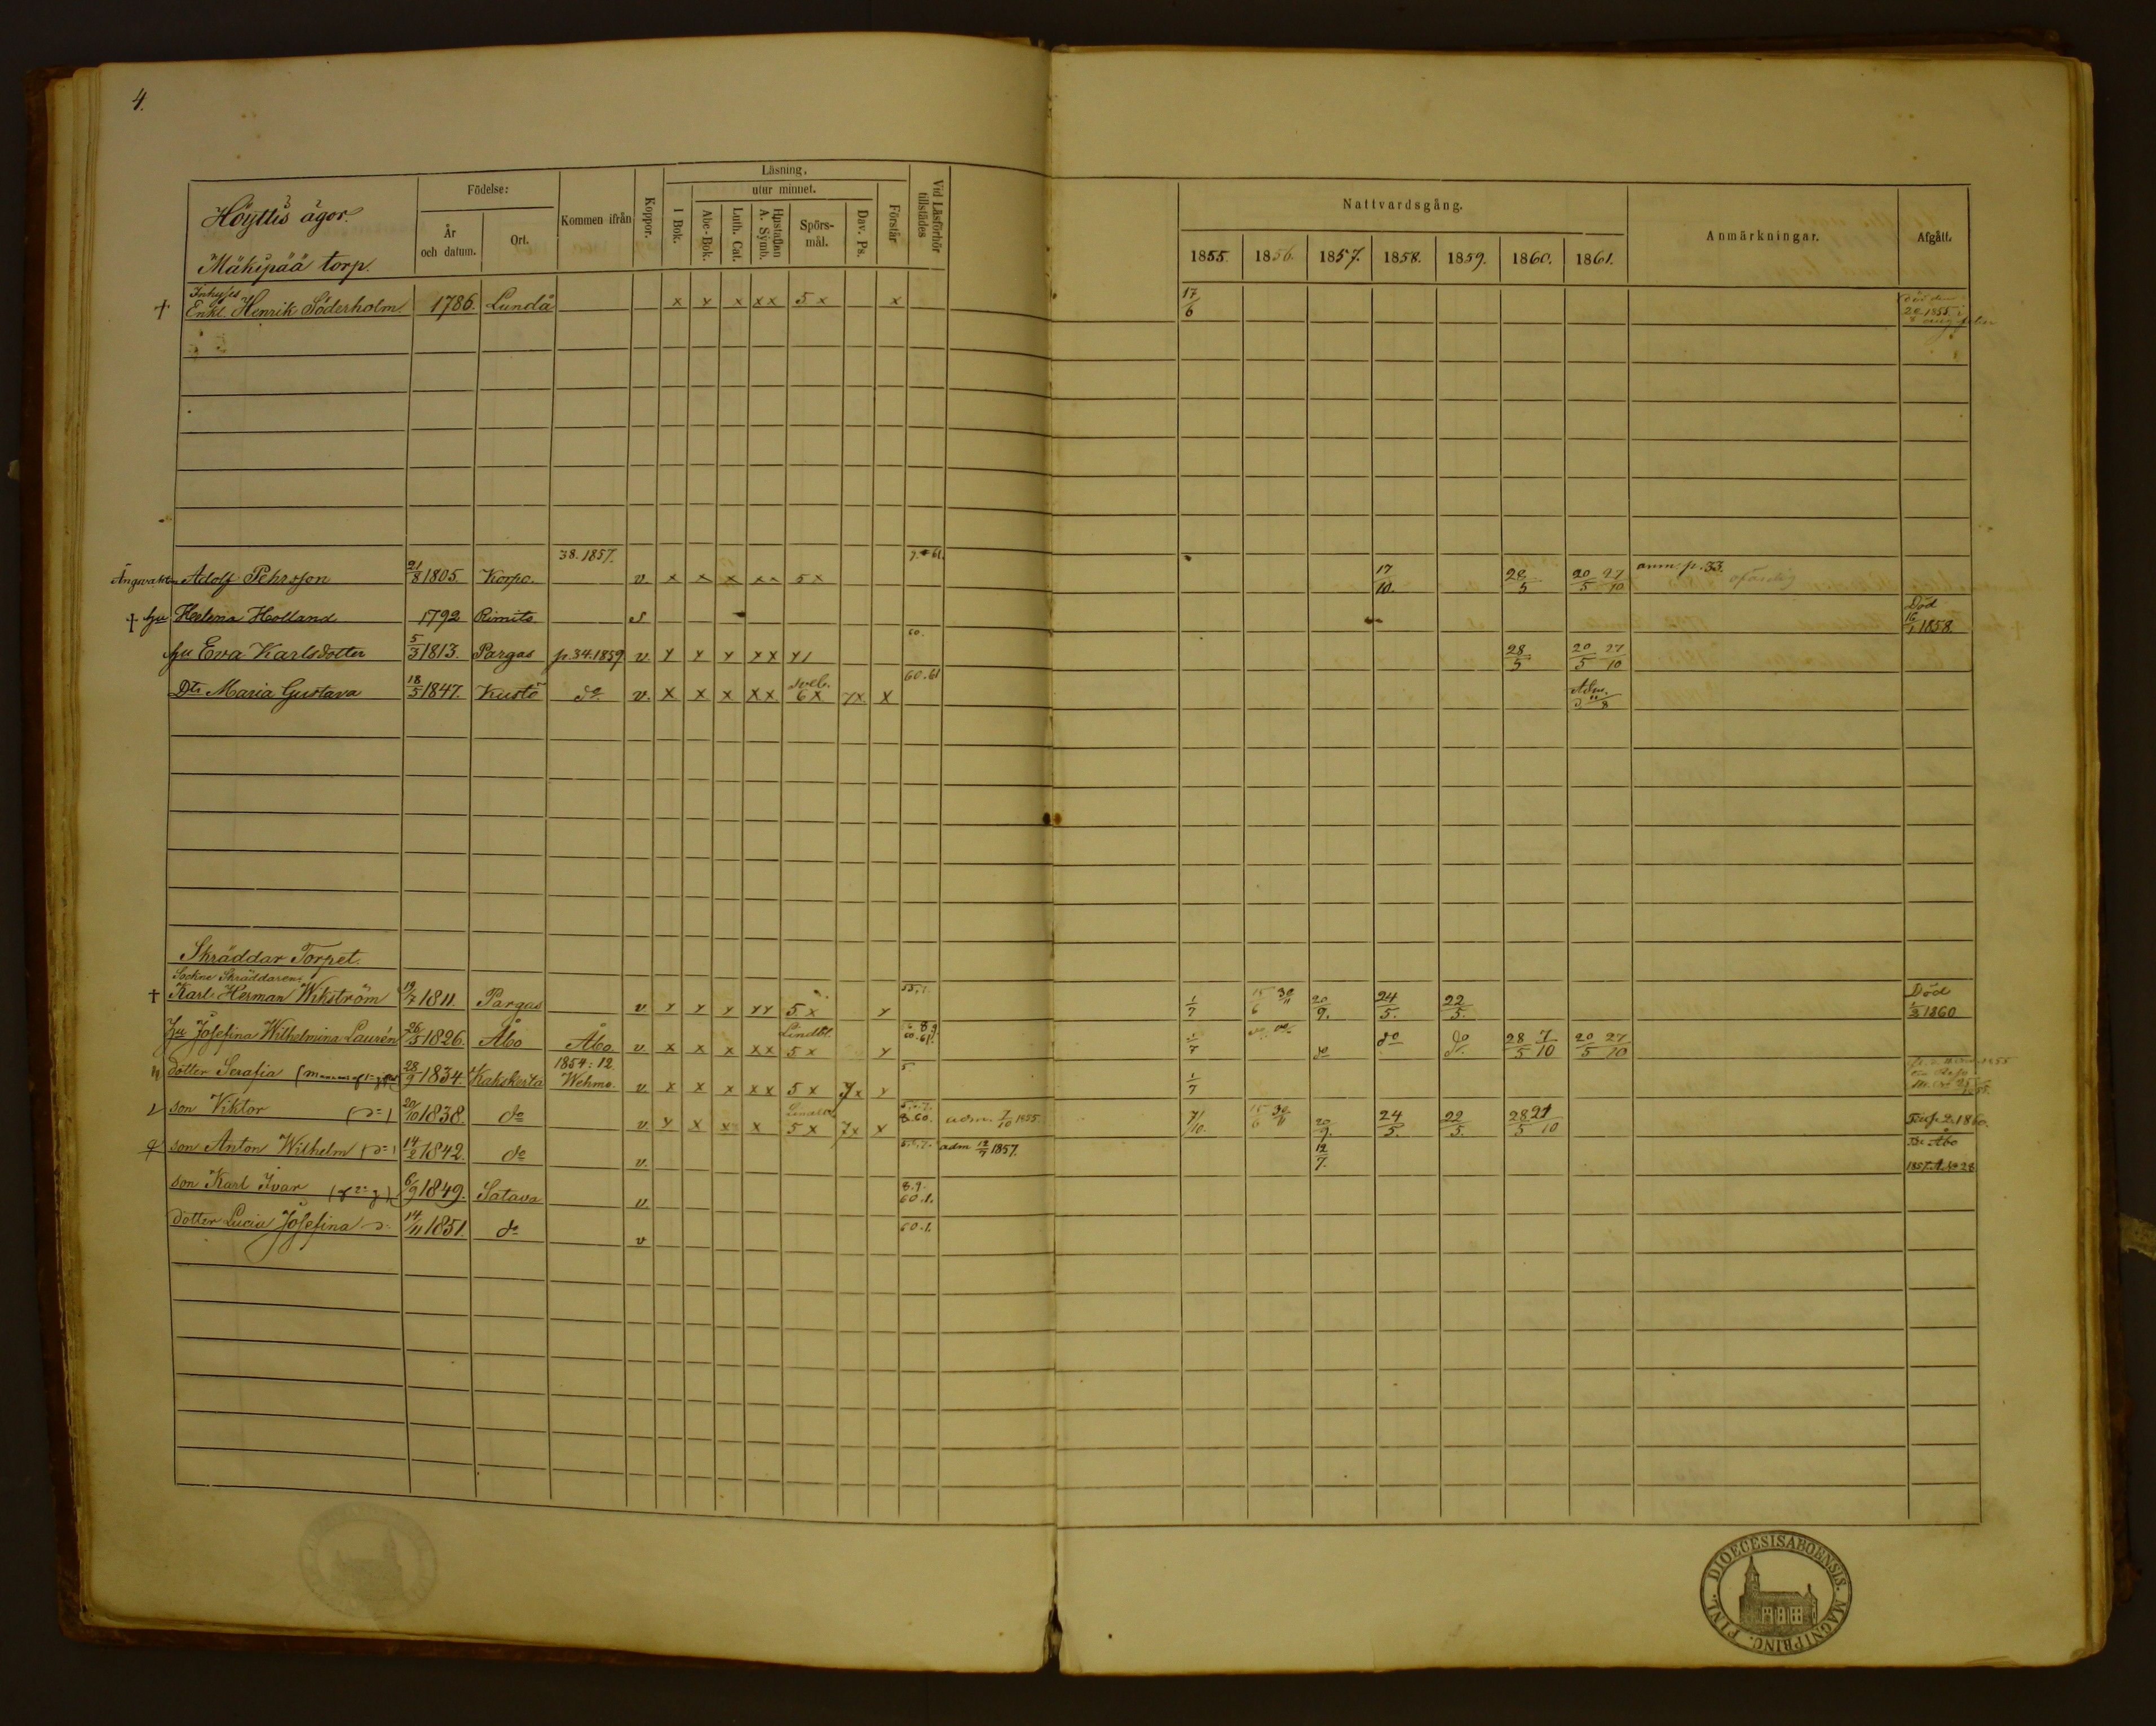 4.
Höyttis ägor.
Mäkipää torp.
Födelse:
År och datum.
Ort.
Kommen ifrån
Koppor.
Läsning.
I Bok.
utur minnet.
Abc-Bok.
Luth. Cat.
Hustaflan A. Symb.
Spörs-mål.
Dav. Ps.
Förstår
Vid Läsförhör tillstädes
Nattvardsgång.
1855. 1856. 1857. 1858. 1859. 1860. 1861.
Anmärkningar.
Afgått.
† Inhyses
Enkl. Henrik Söderholm 1786. Lundå x x x xx 5 x x 17/6
20 1855
38. 1857.
Adolf Pehrsson 21/8 1805. Korpo. v. x x x xx 5 x 17/10. 28/5 20/5 27/10 anm. p. 33. ofärdig
† hu Helena Holland 1792 Rimito s Död 16/1 1858.
hu Eva Karlsdotter 5/3 1813. Pargas p. 34. 1859 v x x x xx x1 60. 28/5 20/5 27/10
Dtr Maria Gustava 18/5 1847. Kustö do v. x x x xx 6 x 7x. x 60. 61 Adm.
Skräddar Torpet.
Sockne Skräddaren
† Karl Herman Wikström 19/7 1811. Pargas v x x x xx 5 x x 1/7 15/6 30/11 20/9. 24/5. 22/5. Död 1860
hu Josefina Wilhelmina Laurén 26/5 1826. Åbo Åbo v. x x x xx Lindbl. 5 x x 60. 61. 1/7 do do do do do 28/5 7/10 20/5 27/10
dotter Serafia 28/9 1834. Kakskerta 1854: 12 Wehmo v x x x xx 5 x 7x x 5 1/7
son Viktor 20/10 1838. do v x x x x 5 x 7x x 8. 60. adm. 7/10 1855. 7/10. 15/6 30/11 20/9. 24/5. 22/5. 28/5 21/10 1860.
son Anton Wilhelm 14/2 1842. do v. adm 12/7 1857. 12/7. Åbo
1857. A. No 28
son Karl Ivar 6/9 1849. Satava v. 8. 9. 60. 1.
dotter Lucia Josefina 14/11 1851. do v 60. 1.
DIOECESIS ABOENSIS. MAGNI PRINC. FINL.